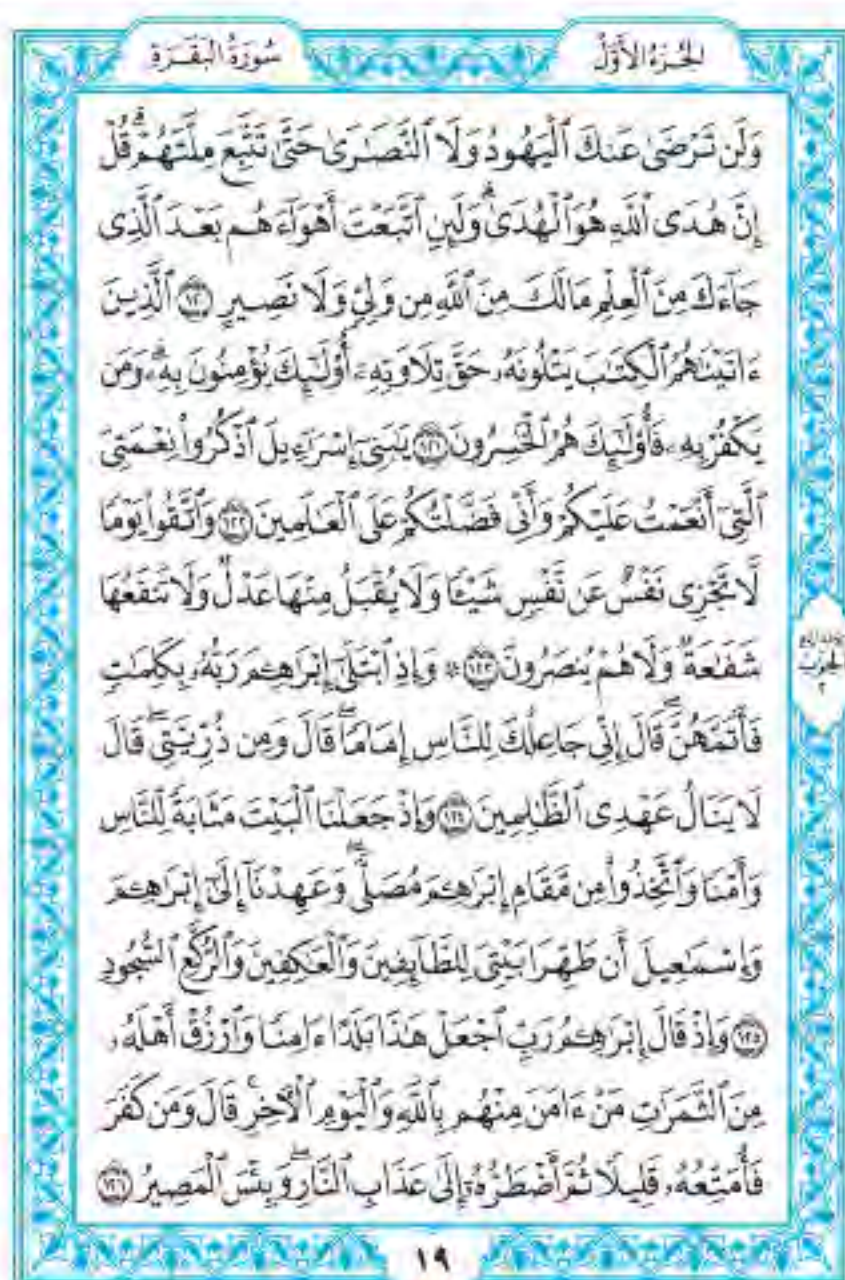 الجزء الأول
سورة البقرة
وَلَن تَرْضَىٰ عَنكَ ٱلْيَهُودُ وَلَا ٱلنَّصَٰرَىٰ حَتَّىٰ تَتَّبِعَ مِلَّتَهُمْۗ قُلْ
إِنَّ هُدَى ٱللَّهِ هُوَ ٱلْهُدَىٰۗ وَلَئِنِ ٱتَّبَعْتَ أَهْوَآءَهُم بَعْدَ ٱلَّذِى
جَآءَكَ مِنَ ٱلْعِلْمِ مَالَكَ مِنَ ٱللَّهِ مِن وَلِىٍّ وَلَا نَصِيرٍ ١٢٠ ٱلَّذِينَ
ءَاتَيْنَٰهُمُ ٱلْكِتَٰبَ يَتْلُونَهُۥ حَقَّ تِلَاوَتِهِۦٓ أُو۟لَٰٓئِكَ يُؤْمِنُونَ بِهِۦۗ وَمَن
يَكْفُرْ بِهِۦ فَأُو۟لَٰٓئِكَ هُمُ ٱلْخَٰسِرُونَ ١٢١ يَٰبَنِىٓ إِسْرَٰٓءِيلَ ٱذْكُرُوا۟ نِعْمَتِىَ
ٱلَّتِىٓ أَنْعَمْتُ عَلَيْكُمْ وَأَنِّى فَضَّلْتُكُمْ عَلَى ٱلْعَٰلَمِينَ ١٢٢ وَٱتَّقُوا۟ يَوْمًا
لَّا تَجْزِى نَفْسٌ عَن نَّفْسٍ شَيْـًٔا وَلَا يُقْبَلُ مِنْهَا عَدْلٌ وَلَا تَنفَعُهَا
شَفَٰعَةٌ وَلَا هُمْ يُنصَرُونَ ١٢٣ ۞ وَإِذِ ٱبْتَلَىٰٓ إِبْرَٰهِـۧمَ رَبُّهُۥ بِكَلِمَٰتٍ
فَأَتَمَّهُنَّۖ قَالَ إِنِّى جَاعِلُكَ لِلنَّاسِ إِمَامًاۖ قَالَ وَمِن ذُرِّيَّتِىۖ قَالَ
لَا يَنَالُ عَهْدِى ٱلظَّٰلِمِينَ ١٢٤ وَإِذْ جَعَلْنَا ٱلْبَيْتَ مَثَابَةً لِّلنَّاسِ
وَأَمْنًا وَٱتَّخِذُوا۟ مِن مَّقَامِ إِبْرَٰهِـۧمَ مُصَلًّىۖ وَعَهِدْنَآ إِلَىٰٓ إِبْرَٰهِـۧمَ
وَإِسْمَٰعِيلَ أَن طَهِّرَا بَيْتِىَ لِلطَّآئِفِينَ وَٱلْعَٰكِفِينَ وَٱلرُّكَّعِ ٱلسُّجُودِ
١٢٥ وَإِذْ قَالَ إِبْرَٰهِـۧمُ رَبِّ ٱجْعَلْ هَٰذَا بَلَدًا ءَامِنًا وَٱرْزُقْ أَهْلَهُۥ
مِنَ ٱلثَّمَرَٰتِ مَنْ ءَامَنَ مِنْهُم بِٱللَّهِ وَٱلْيَوْمِ ٱلْءَاخِرِۚ قَالَ وَمَن كَفَرَ
فَأُمَتِّعُهُۥ قَلِيلًا ثُمَّ أَضْطَرُّهُۥٓ إِلَىٰ عَذَابِ ٱلنَّارِۖ وَبِئْسَ ٱلْمَصِيرُ ١٢٦
الحزب
٢
١٩